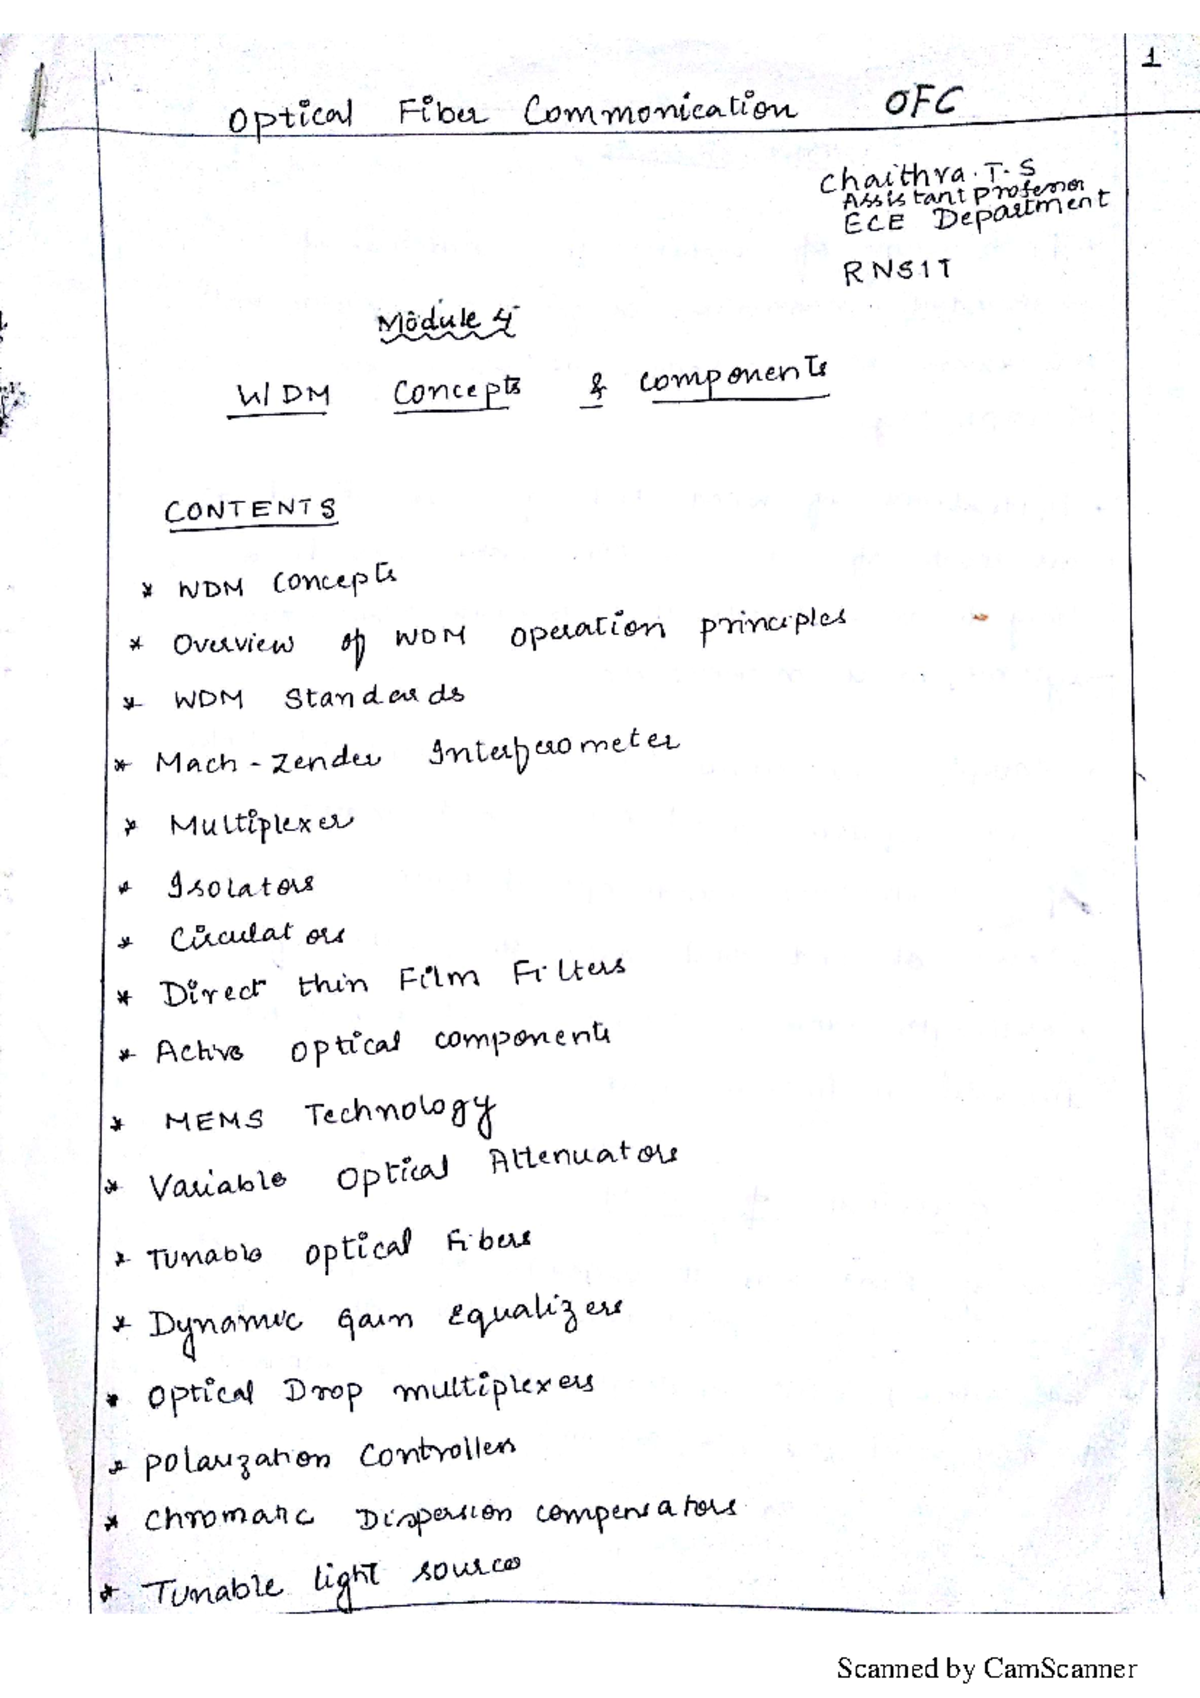 1
Optical Fiber Commonication OFC
Chaithra.T.S
Assistant Professor
ECE Department
RNSIT
Module 4
WDM Concepts & components
CONTENTS
* WDM Concepts
* Overview of WDM operation principles
* WDM Standards
* Mach-Zender Interferometer
* Multiplexer
* Isolators
* Circulators
* Direct thin Film Filters
* Active optical components
* MEMS Technology
* Variable Optical Attenuators
* Tunable optical Fibers
* Dynamic Gain Equalizers
* Optical Drop multiplexers
* Polarization Controllers
* Chromatic Dispersion compensators
* Tunable light sources
Scanned by CamScanner